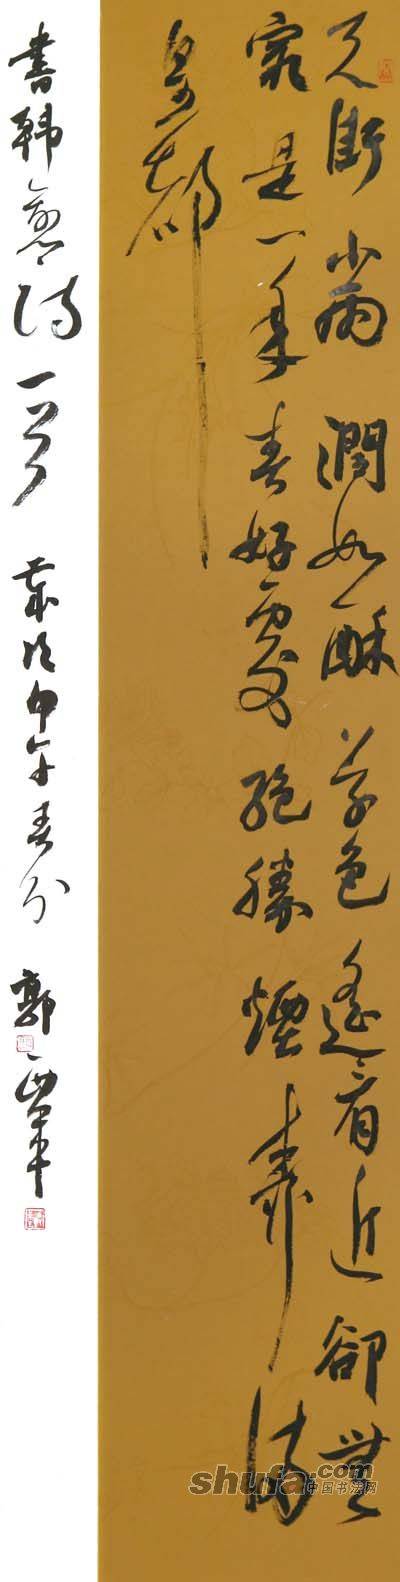 天街小雨潤如酥草色遙看近卻無
最是一年春好處絕勝煙柳滿
皇都
書韓愈詩一首 歲次甲午春分 郭
shufa.com
中国书法网